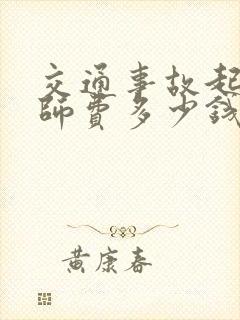 交通事故起
師費多少錢
黄康春